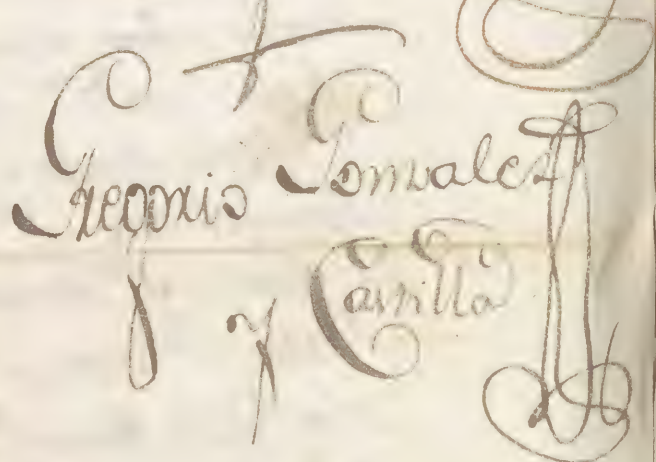 Gregorio Gonzalez
y Castilla